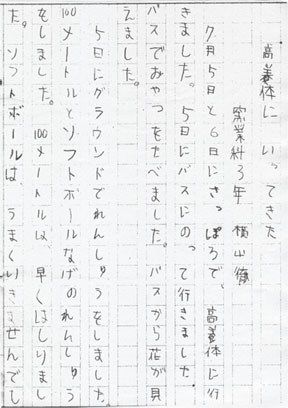 高養体にいってきた
窯業科3年 横山徹
7月5日と6日にさっぽろで、高養体に行
きました。5日にバスにのって行きました。
バスでおやつをたべました。バスから花が見
えました。
5日にグラウンドでれんしゅうをしました。
100メートルとソフトボールなげのれんしゅう
をしました。100メートルは、早くはしりまし
た。ソフトボールは、うまくいきませんでし